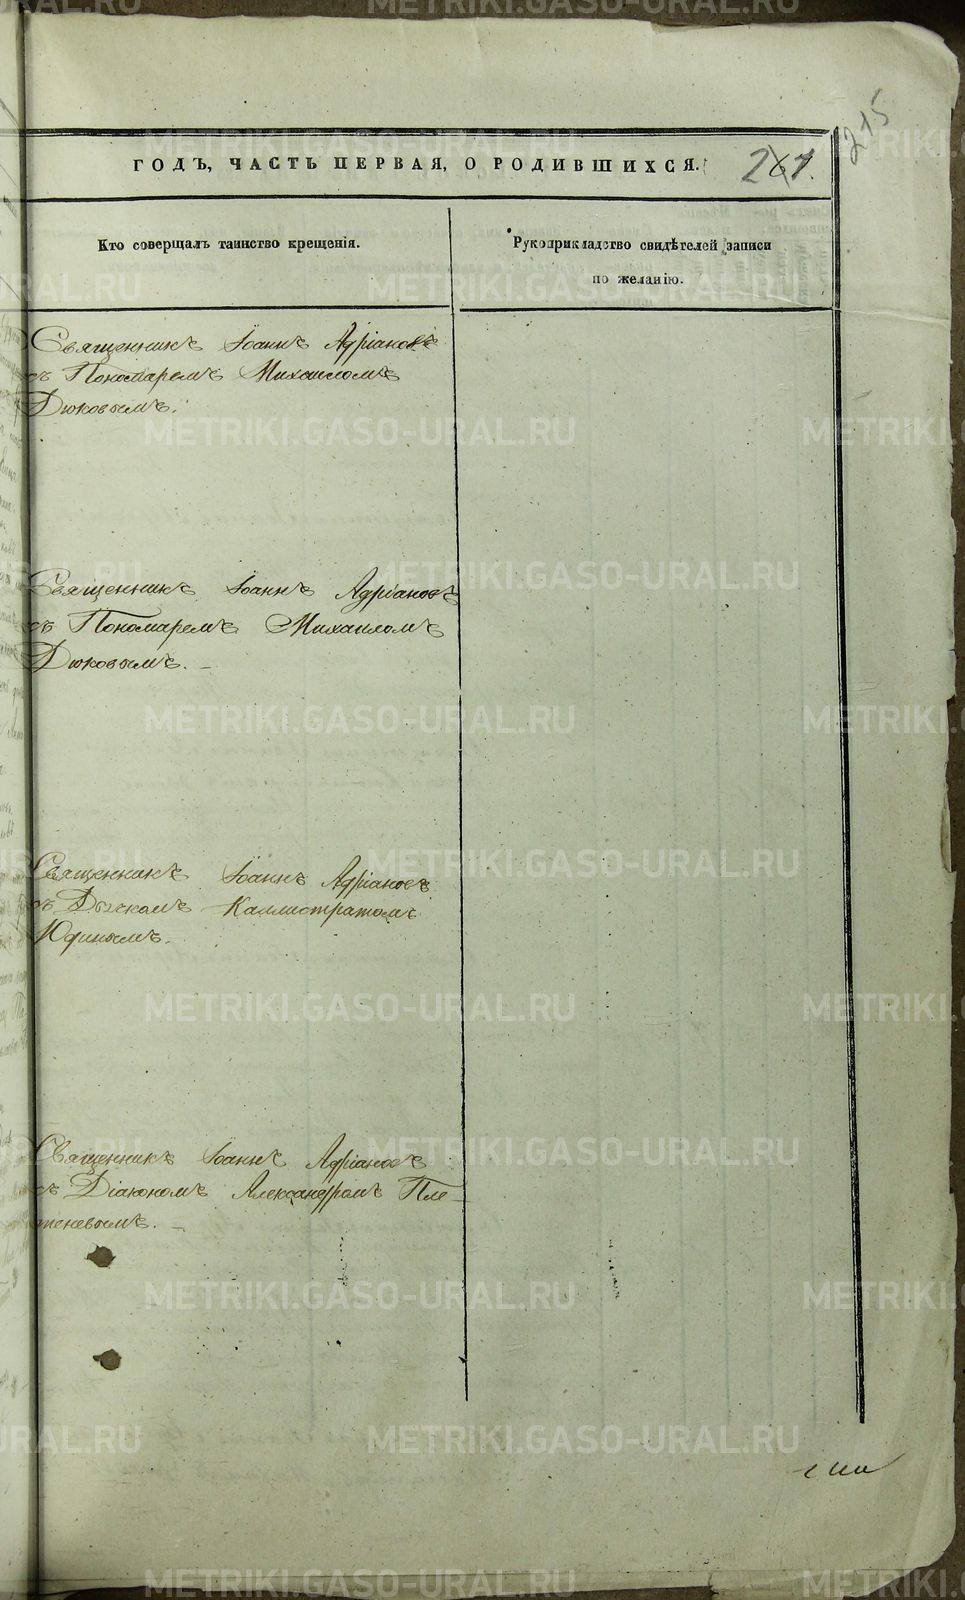 215
ГОДЪ, ЧАСТЬ ПЕРВАЯ, О РОДИВШИХСЯ.
Кто совершалъ таинство крещенія.
Рукоприкладство свидѣтелей записи
по желанію.
Священникъ Іоаннъ Адріановъ
съ Пономаремъ Михаиломъ
Дюковымъ.
Священникъ Іоаннъ Адріановъ
съ Пономаремъ Михаиломъ
Дюковымъ. –
Священникъ Іоаннъ Адріановъ
съ Дьячкомъ Каллистратомъ
Юдинымъ.
Священникъ Іоаннъ Адріановъ
съ Діакономъ Александромъ Пле-
теневымъ. –
METRIKI.GASO-URAL.RU